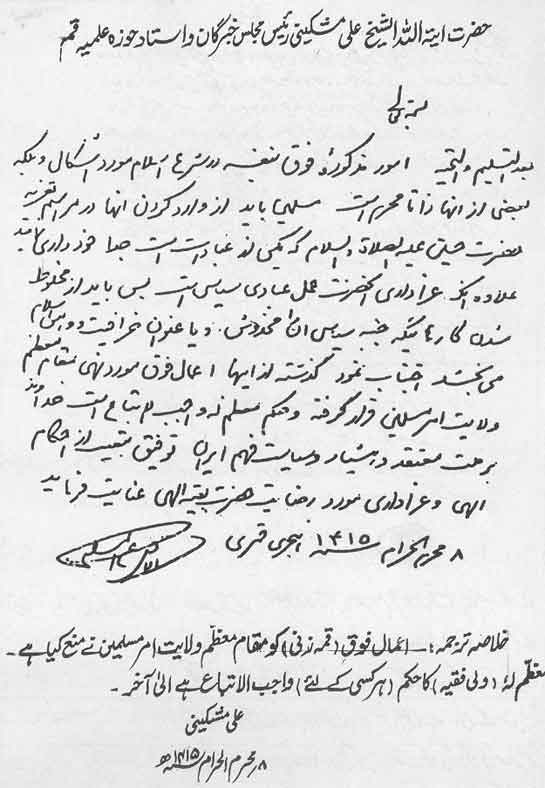 حضرت ایتہ اللہ الشیخ علی مشکینی رئیس مجلس خبرگان و استاد حوزہ علمیہ قم
بسمه تعالی
بعد التسلیم والتحیه امور مذکوره فوق بنفسه در شرع اسلام مورد اشکال و بلکه
بعضی از انها ذاتا محرم است مسلمین باید از وارد کردن انها در مراسم تعزیه
حضرت حسین علیه الصلاة والسلام که یکی از عبادات است جدا خودداری نمایند
علاوه انکه عزاداری آنحضرت عمل عبادی سیاسی است پس باید از مخلوط
شدن کارهائیکه جنبه سیاسی آنرا مخدوش و یا عنوان خرافیت و وهن اسلام
می بخشد اجتناب نمود گذشته از اینها اعمال فوق مورد نهی مقام معظم
ولایت امر مسلمین قرار گرفته و حکم معظم له واجب الاتباع است خداوند
بر ملت معتقد و هشیار و سیاست فهم ایران توفیق تبعیت از احکام
الهی و عزاداری مورد رضایت حضرت بقیه الهی عنایت فرماید
۸ محرم الحرام سنه ۱۴۱۵ هجری قمری
خلاصہ ترجمہ :۔ اعمال فوق (قمہ زنی) کو مقام معظم ولایت امر مسلمین نے منع کیا ہے۔
معظم لہ (ولی فقیہ) کا حکم (ہر کسی کے لئے) واجب الاتباع ہے الیٰ آخر۔
علی مشکینی
۸ محرم الحرام سنہ ۱۴۱۵ھ